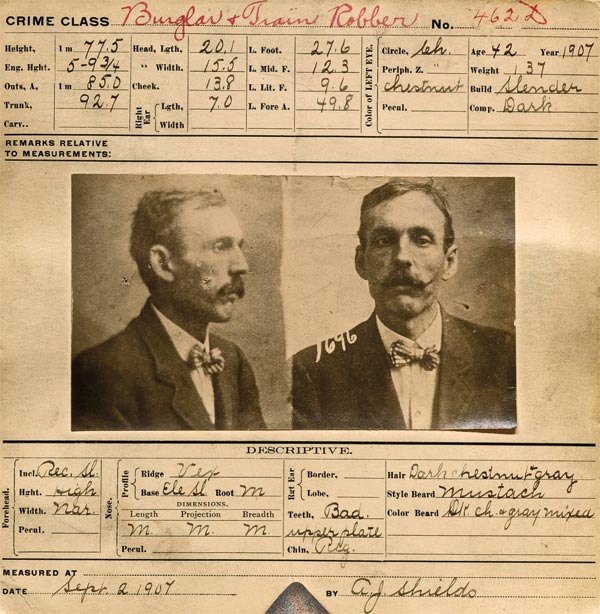 CRIME CLASS Burglar & Train Robber No. 462 D
Height, 1 m 77.5 Head, Lgth, 20.1 L. Foot. 27.6 Circle, Ch. Age 42 Year 1907
Eng. Hght. 5-9 3/4 " Width, 15.5 L. Mid. F. 12.3 Periph. Z. " Weight 137
Outs, A, 1 m 85.0 Cheek. 13.8 L. Lit. F. 9.6 chestnut Build Slender
Trunk, 92.7 Right Ear Lgth, 7.0 L. Fore A. 49.8 Color of LEFT EYE. Pecul. Comp. Dark
Carv.. Width
REMARKS RELATIVE
TO MEASUREMENTS:
1696
DESCRIPTIVE.
Forehead. Incl. Rec. Sl. Nose. Profile Ridge Vex Rgt Ear Border, Hair Dark chestnut & gray
Hght. High Base Ele Sl. Root M Lobe, Style Beard Mustach
Width. Nar. DIMENSIONS. Teeth, Bad. Color Beard Dk. ch. & gray mixed
Length Projection Breadth
Pecul. M. M. M. upper plate
Pecul. Chin,
MEASURED AT
DATE Sept. 2 1907 BY A.J. Shields